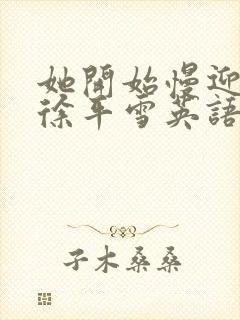 她開始慢迎
徐平雪英語
子木桑桑